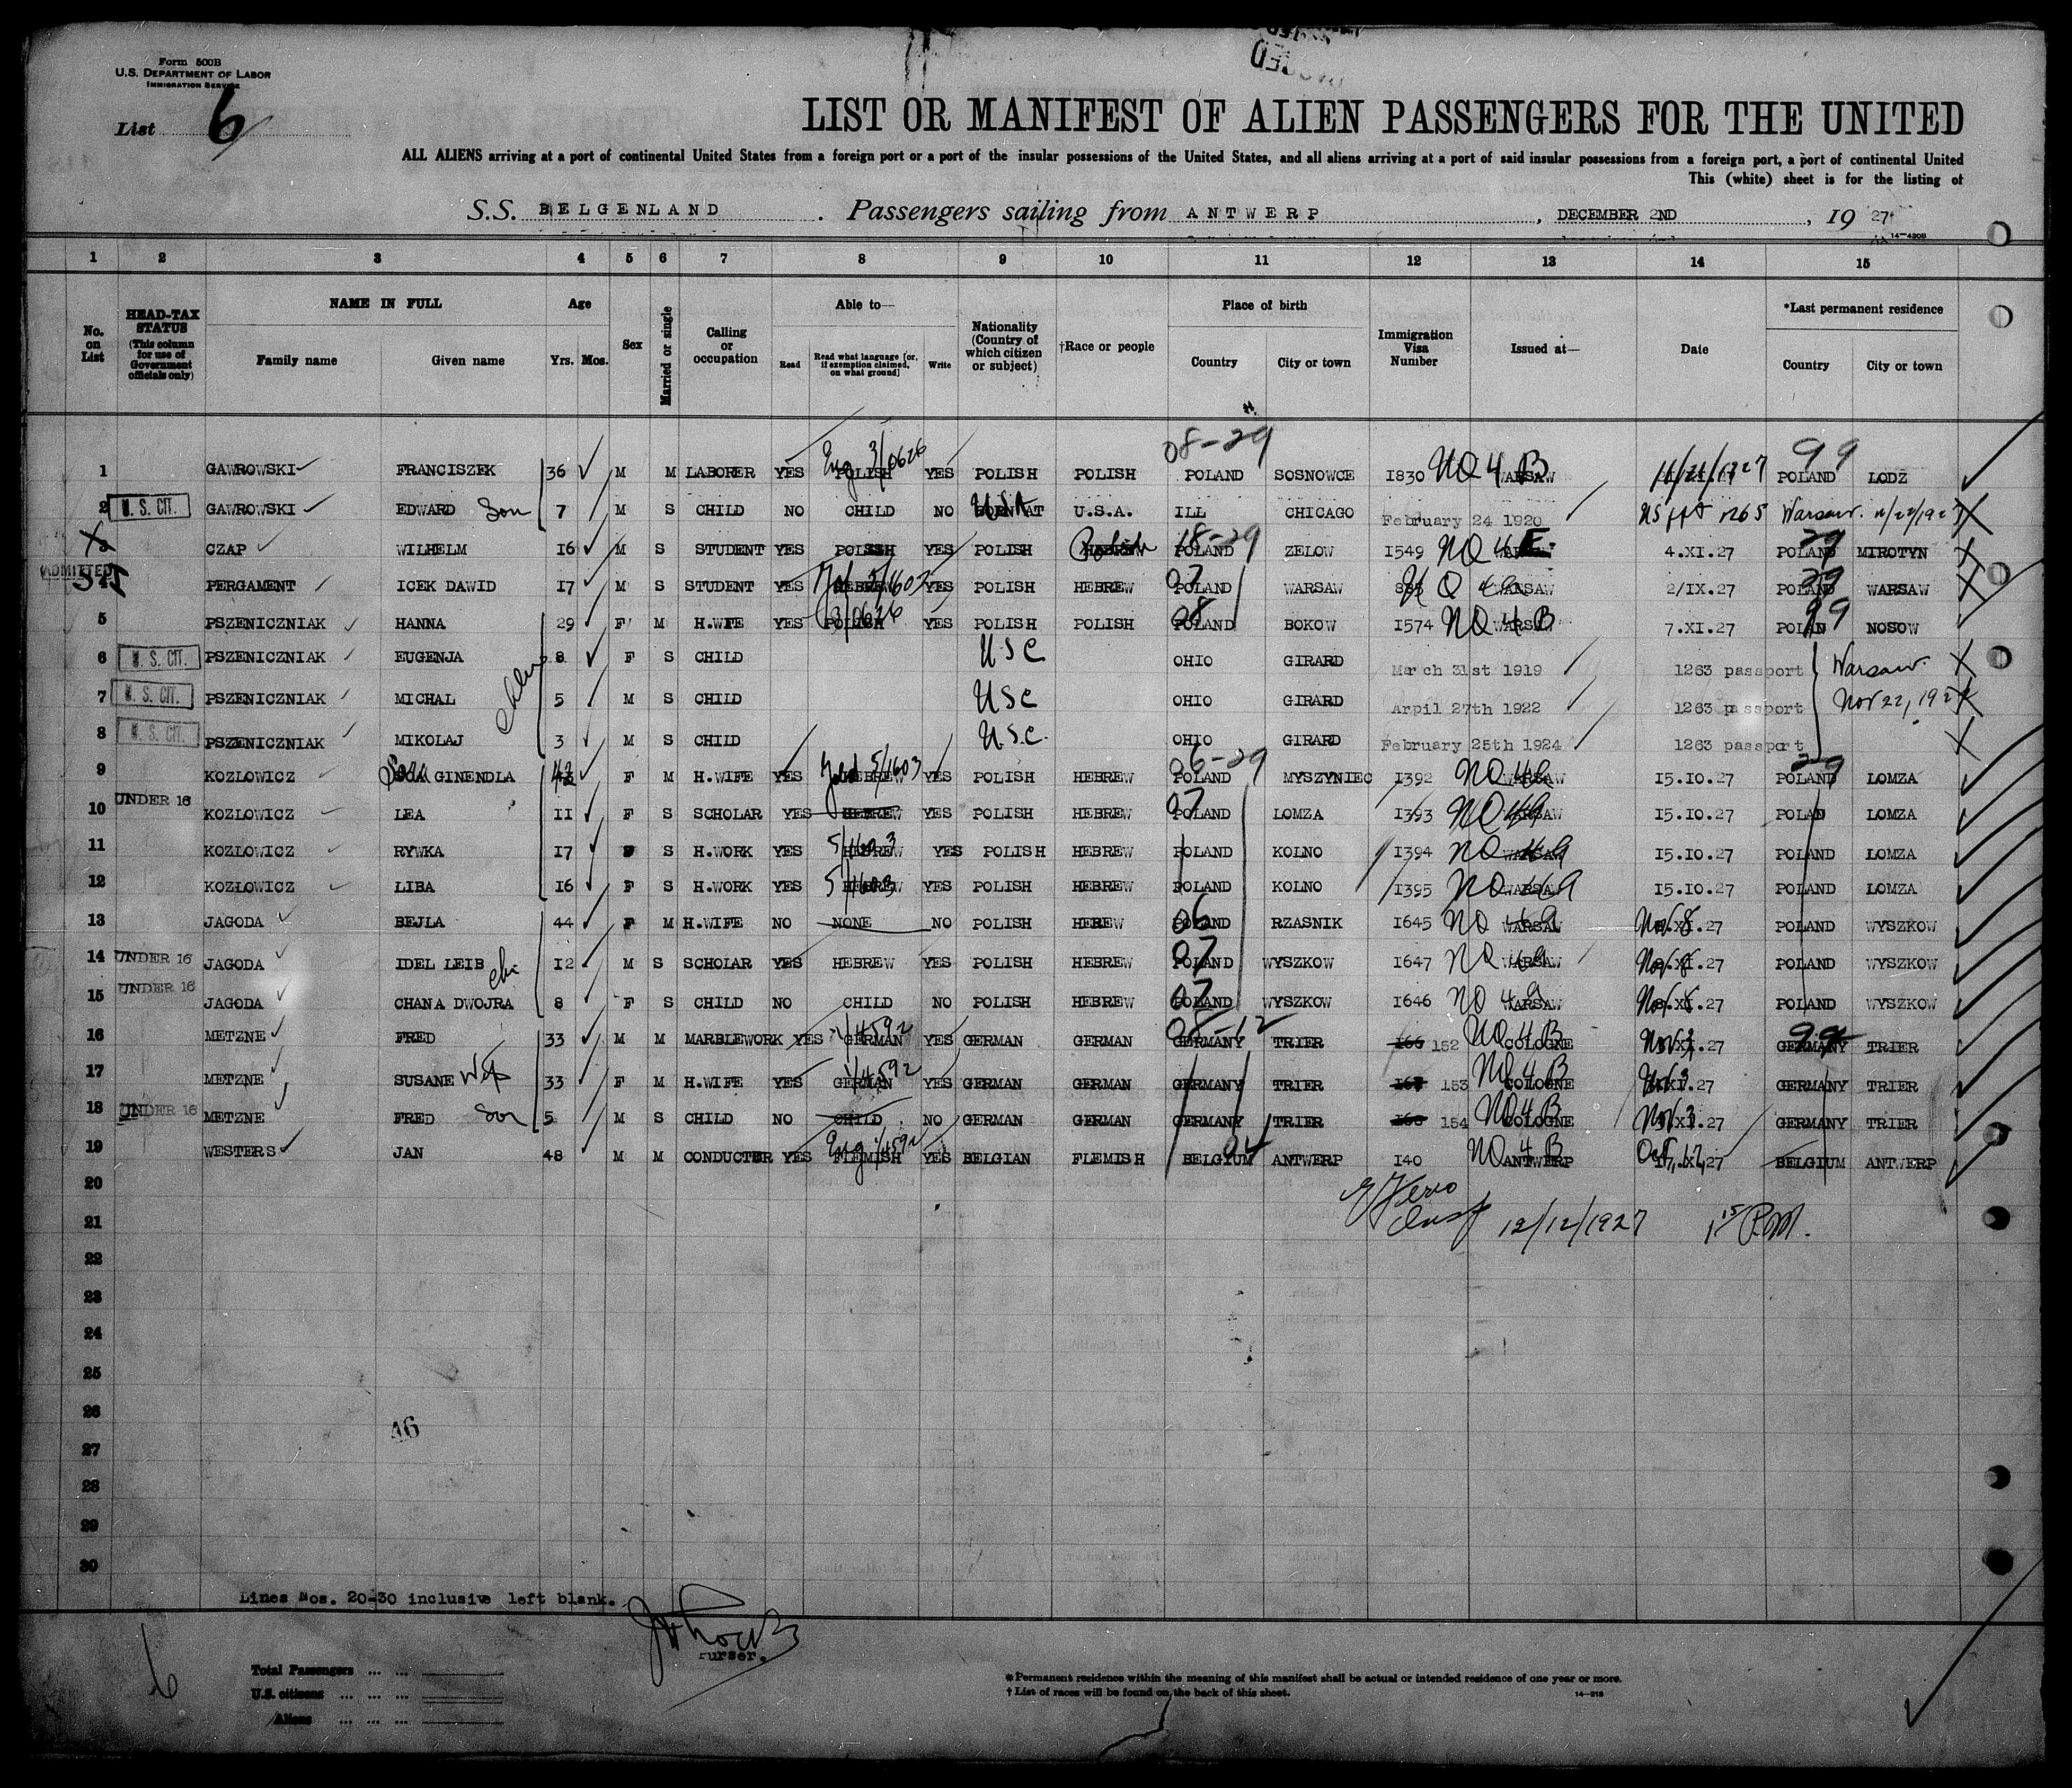 Form 500B
U.S. DEPARTMENT OF LABOR
IMMIGRATION SERVICE
List 6
LIST OR MANIFEST OF ALIEN PASSENGERS FOR THE UNITED
ALL ALIENS arriving at a port of continental United States from a foreign port or a port of the insular possessions of the United States, and all aliens arriving at a port of said insular possessions from a foreign port, a port of continental United
This (white) sheet is for the listing of
S.S. BELGENLAND. Passengers sailing from ANTWERP, DECEMBER 2ND, 19 27
14-430B
1 2 3 4 5 6 7 8 9 10 11 12 13 14 15
No. on List HEAD-TAX STATUS (This column for use of Government officials only) NAME IN FULL Family name Given name Age Yrs. Mos. Sex Married or single Calling or occupation Able to— Read Read what language [or, if exemption claimed, on what ground] Write Nationality (Country of which citizen or subject) †Race or people Place of birth Country City or town Immigration Visa Number Issued at— Date *Last permanent residence Country City or town
08-29 99
1 GAWROWSKI FRANCISZEK 36 M M LABORER YES POLISH Eng 3/0626 YES POLISH POLISH POLAND SOSNOWCE I830 NQ 4 B WARSAW 11/21/1927 POLAND LODZ
2 U.S. CIT. GAWROWSKI EDWARD Son 7 M S CHILD NO CHILD NO USA U.S.A. ILL CHICAGO February 24 1920 Warsaw
CZAP WILHELM I6 M S STUDENT YES POLISH YES POLISH Polish POLAND 18-29 ZELOW I549 NQ 4 E WARSAW 4.XI.27 POLAND 29 MIROTYN
ADMITTED
4 PERGAMENT ICEK DAWID I7 M S STUDENT YES HEBREW 5/1603 YES POLISH HEBREW POLAND 07 WARSAW NQ 4a WARSAW 2/IX.27 POLAND 29 WARSAW
5 PSZENICZNIAK HANNA 29 F M H.WIFE YES POLISH 3/0626 YES POLISH POLISH POLAND 08 BOKOW I574 NQ 4 B WARSAW 7.XI.27 POLAN 99 NOSOW
6 U.S. CIT. PSZENICZNIAK EUGENJA 8 F S CHILD USC OHIO GIRARD March 31st 1919 1263 passport Warsaw
7 U.S. CIT. PSZENICZNIAK MICHAL 5 M S CHILD USC OHIO GIRARD Arpil 27th 1922 1263 passport Nov 22, 1927
8 U.S. CIT. PSZENICZNIAK MIKOLAJ 3 M S CHILD U.S.C. OHIO GIRARD February 25th 1924 1263 passport
9 KOZLOWICZ GINENDLA 42 F M H.WIFE YES HEBREW 5/1603 YES POLISH HEBREW POLAND 06-29 MYSZYNIEC I392 NQ 4a WARSAW I5.IO.27 POLAND 29 LOMZA
10 UNDER 16 KOZLOWICZ LEA II F S SCHOLAR YES HEBREW YES POLISH HEBREW POLAND 07 LOMZA I393 NQ 4a WARSAW I5.IO.27 POLAND LOMZA
11 KOZLOWICZ RYWKA I7 S H.WORK YES HEBREW 5/1603 YES POLISH HEBREW POLAND KOLNO I394 NQ 4a WARSAW I5.IO.27 POLAND LOMZA
12 KOZLOWICZ LIBA I6 F S H.WORK YES HEBREW 5/1603 YES POLISH HEBREW POLAND KOLNO I395 NQ 4a WARSAW I5.IO.27 POLAND LOMZA
13 JAGODA BEJLA 44 F M H.WIFE NO NONE NO POLISH HEREW POLAND 06 RZASNIK I645 NQ 4a WARSAW Nov. 8 27 POLAND WYSZKOW
14 UNDER 16 JAGODA IDEL LEIB I2 M S SCHOLAR YES HEBREW YES POLISH HEBREW POLAND 07 WYSZKOW I647 NQ 4a WARSAW Nov. 8 27 POLAND WYSZKOW
15 UNDER 16 JAGODA CHANA DWOJRA chi 8 F S CHILD NO CHILD NO POLISH HEBREW POLAND 07 WYSZKOW I646 NQ 4a WARSAW Nov. 8 27 POLAND WYSZKOW
16 METZNE FRED 33 M M MARBLEWORK YES GERMAN 1/4592 YES GERMAN GERMAN GERMANY 08-12 TRIER 152 NQ 4 B COLOGNE Nov 3 27 GERMANY 99 TRIER
17 METZNE SUSANE Wife 33 F M H.WIFE YES GERMAN 1/4592 YES GERMAN GERMAN GERMANY TRIER 153 NQ 4 B COLOGNE Nov 3 27 GERMANY TRIER
18 UNDER 16 METZNE FRED Son 5 M S CHILD NO CHILD NO GERMAN GERMAN GERMANY TRIER 154 NQ 4 B COLOGNE Nov 3 27 GERMANY TRIER
19 WESTERS JAN 48 M M CONDUCTOR YES FLEMISH Eng 1/4592 YES BELGIAN FLEMISH BELGIUM 04 ANTWERP I40 NQ 4 B ANTWERP Oct. 17, 27 BELGIUM ANTWERP
20
21 Insp 12/12/1927 1 15 P.M.
22
23
24
25
26
46
27
28
29
30
Lines Nos. 20-30 inclusive left blank.
Purser.
6
Total Passengers ... ...
U.S. citizens ... ... ...
Aliens ... ... ...
*Permanent residence within the meaning of this manifest shall be actual or intended residence of one year or more.
† List of races will be found on the back of this sheet.
14-218